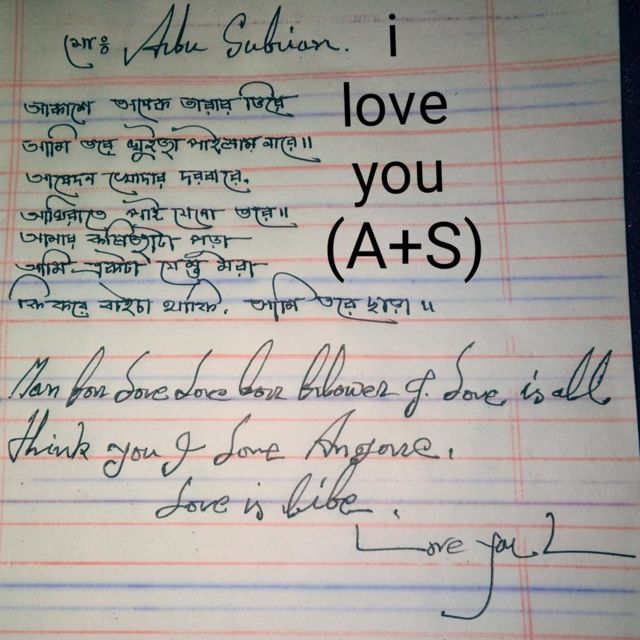 মোঃ Abu Subian.
i
love
you
(A+S)
আকাশে অনেক তারার ভিরে
আমি তরে খুইজা পাইলাম নারে॥
আবেদন খোদার দরবারে,
আখিরাতে পাই যেনো তরে॥
আমার কলিজাটা পড়া
আমি একটা মরা
কি করে বাইচা থাকি, আমি তরে ছারা॥
for Love Love for I Love is all
think you I Love Anyone.
Love is life.
Love you